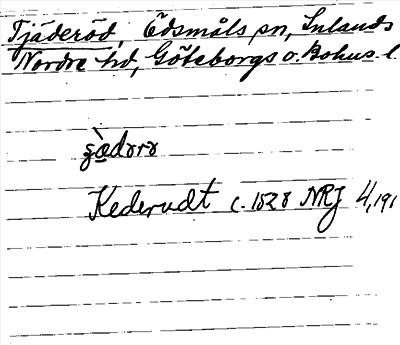 Tjäderöd, Ödsmåls sn, Inlands
Nordre hd, Göteborgs o. Bohus l.
Kederudt c. 1528 NRJ 4,191